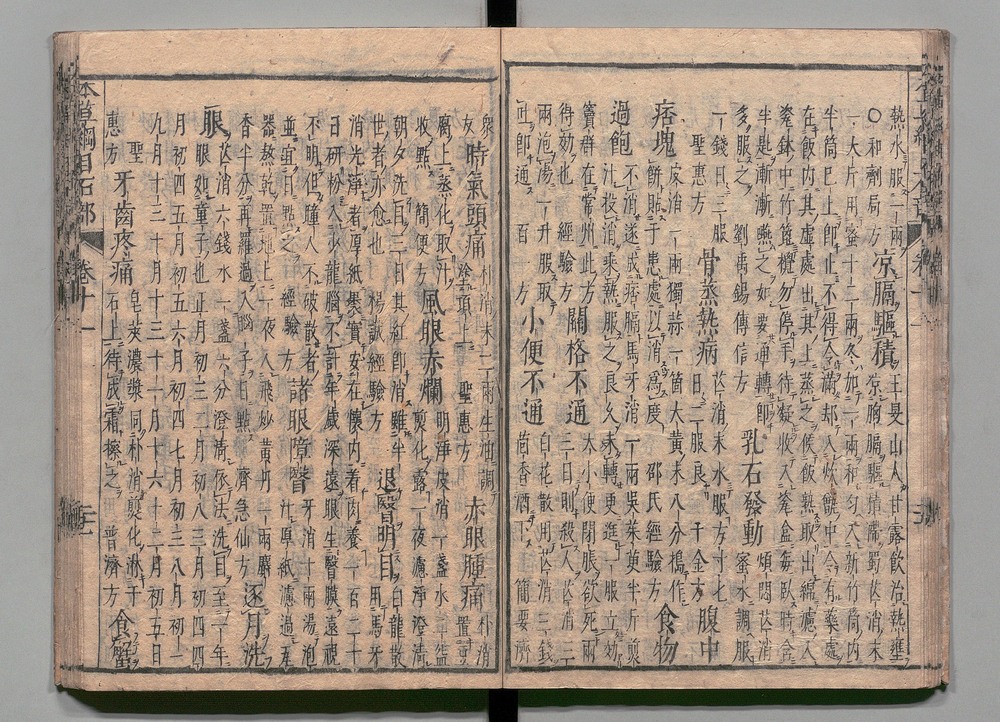 熱水服一二兩
○和劑局方
涼膈驅積
王旻山人甘露飲治熱壅
涼胸膈驅積滯蜀芒消末
一大斤用蜜十二兩冬加一兩和勻入新竹筒內
半筒已上即止不得令滿却入炊甑中令有藥處
在飯內其虛處出其上蒸之候飯熟取出綿濾入
瓷鉢中竹篦攪勿停手待凝收入瓷盒每臥時含
半匙漸漸嚥之如要通轉即
多服之劉禹錫傳信方
乳石發動
煩悶芒消
蜜水調服
一錢日三服
聖惠方
骨蒸熱病
芒消末水服方寸匕
日二服良千金方
腹中
痞塊
皮消一兩獨蒜一箇大黃末八分搗作
餅貼于患處以消為度邵氏經驗方
食物
過飽
不消遂成痞膈馬牙消一兩吳茱萸半斤煎
汁投消乘熱服之良久未轉更進一服立效
竇群在常州此方
得効也經驗方
關格不通
大小便閉脹欲死兩
三日則殺人芒消三
兩泡湯一升服取
吐即通百一方
小便不通
白花散用芒消三錢
茴香酒下簡要濟
衆
方
時氣頭痛
朴消末二兩生油調
塗頂上聖惠方
赤眼腫痛
朴消
置豆
腐上蒸化取汁
收點簡便方
風眼赤爛
明淨皮消一盞水二盌
煎化露一夜濾淨澄清
朝夕洗目三日其紅即消雖半
世者亦愈也楊誠經驗方
退翳明目
白龍散
用馬牙
消光淨者厚紙裹實安在懷內着肉養一百二十
日研粉入少龍腦不計年歲深遠眼生翳膜遠視
不明但瞳人不破散者
並宜日點之經驗方
諸眼障翳
牙消十兩湯泡
汁厚紙濾過瓦
器熬乾置地上一夜入飛炒黃丹一兩麝
香半分再羅過入腦子日點濟急仙方
逐月洗
眼
芒消六錢水一盞六分澄清依法洗目至一年
眼如童子也正月初三二月初八三月初四四
月初四五月初五六月初四七月初三八月初一
九月十三十月十三十一月十六十二月初五日
聖
惠方
牙齒疼痛
皂莢濃漿同朴消煎化淋于
石上待成霜擦之普濟方
食蟹
本草綱目石部 卷十一